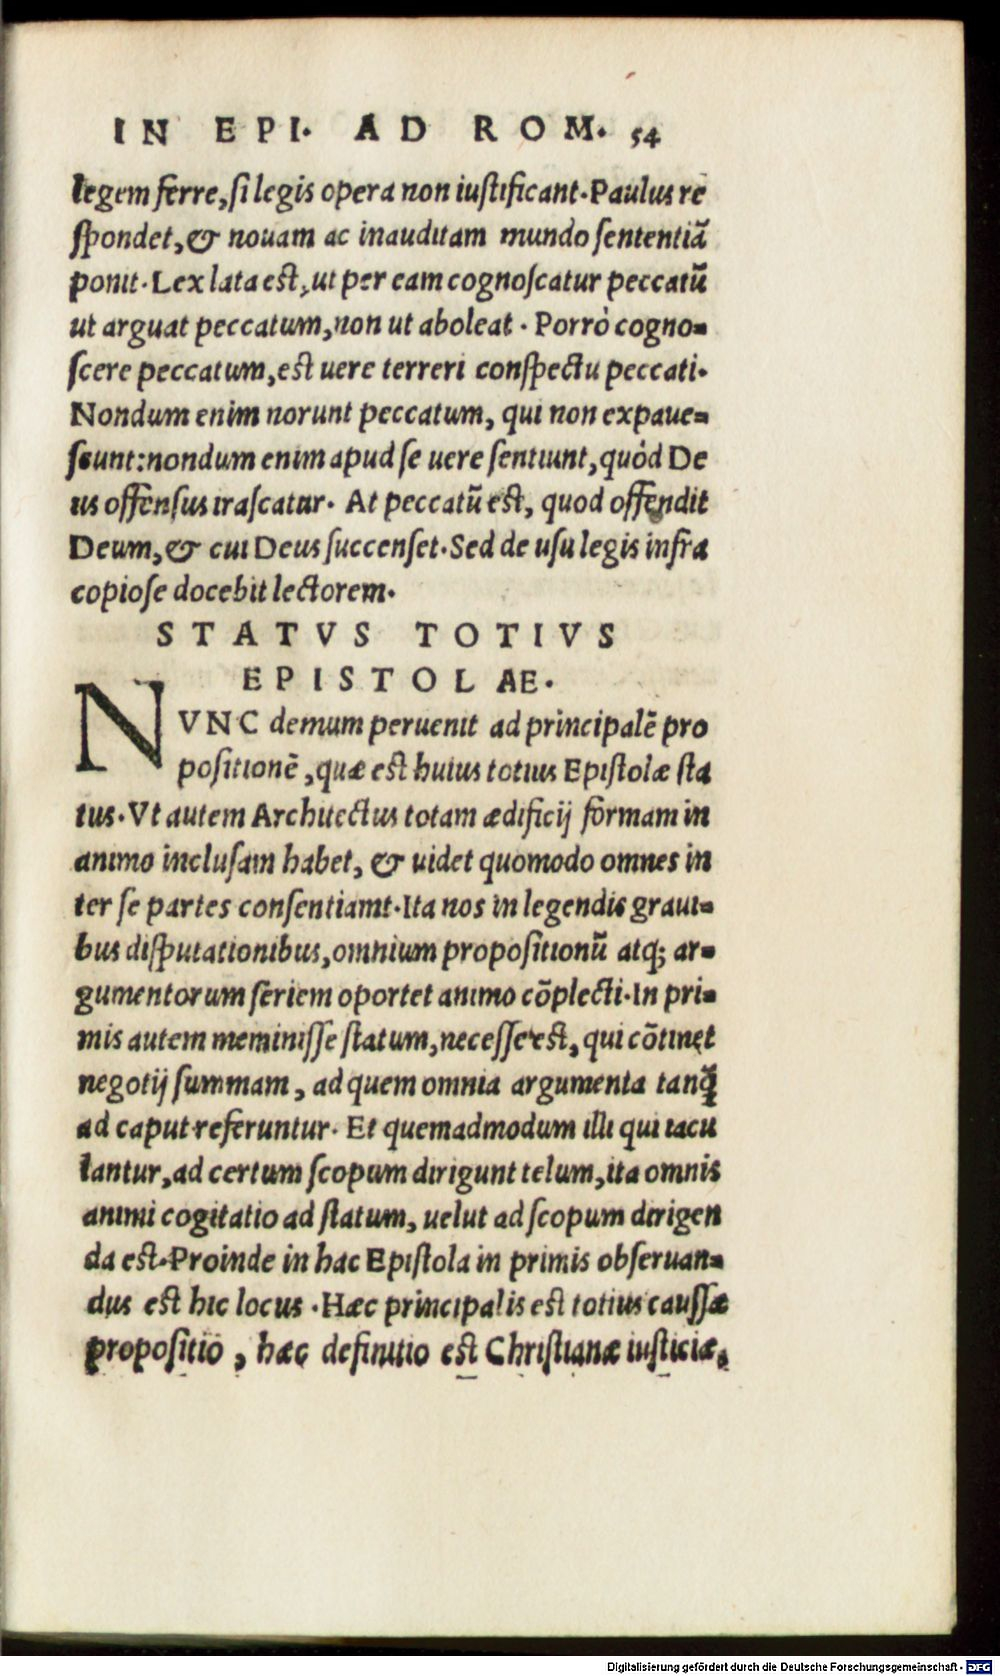 IN EPI. AD ROM. 54
legem ferre, si legis opera non iustificant. Paulus re
spondet, & nouam ac inauditam mundo sententiā
ponit. Lex lata est, ut per eam cognoscatur peccatū
ut arguat peccatum, non ut aboleat. Porrò cogno-
scere peccatum, est uere terreri conspectu peccati.
Nondum enim norunt peccatum, qui non expaue-
scunt: nondum enim apud se uere sentiunt, quòd De
us offensus irascatur. At peccatū est, quod offendit
Deum, & cui Deus succenset. Sed de usu legis infra
copiose docebit lectorem.
STATVS TOTIVS
EPISTOLAE.
NVNC demum peruenit ad principalē pro
positionē, quæ est huius totius Epistolæ sta
tus. Vt autem Architectus totam ædificij formam in
animo inclusam habet, & uidet quomodo omnes in
ter se partes consentiamt. Ita nos in legendis graui-
bus disputationibus, omnium propositionū atq; ar-
gumentorum seriem oportet animo cōplecti. In pri-
mis autem meminisse statum, necesse est, qui cōtinet
negotij summam, ad quem omnia argumenta tanq̄
ad caput referuntur. Et quemadmodum illi qui iacu
lantur, ad certum scopum dirigunt telum, ita omnis
animi cogitatio ad statum, uelut ad scopum dirigen
da est. Proinde in hac Epistola in primis obseruan-
dus est hic locus. Hæc principalis est totius caussæ
propositio, hæc definitio est Christianæ iusticiæ,
Digitalisierung gefördert durch die Deutsche Forschungsgemeinschaft - DFG